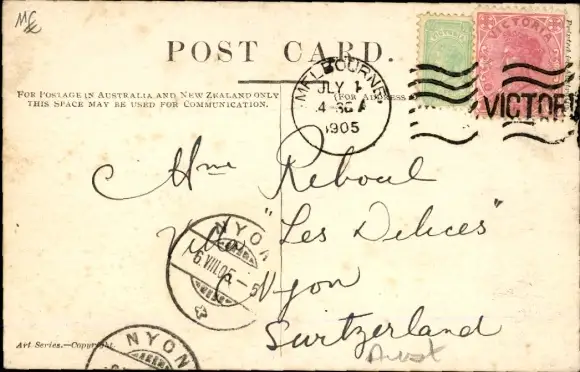 POST CARD.
FOR POSTAGE IN AUSTRALIA AND NEW ZEALAND ONLY
THIS SPACE MAY BE USED FOR COMMUNICATION.
(FOR ADDRESS
MELBOURNE
JLY 1
1905
VICTORIA
VICTOR
Mme Reboul
Villa "Les Delices"
Nyon
Switzerland
NYON
6.VIII.05.
NYON
Art Series.—Copyright.